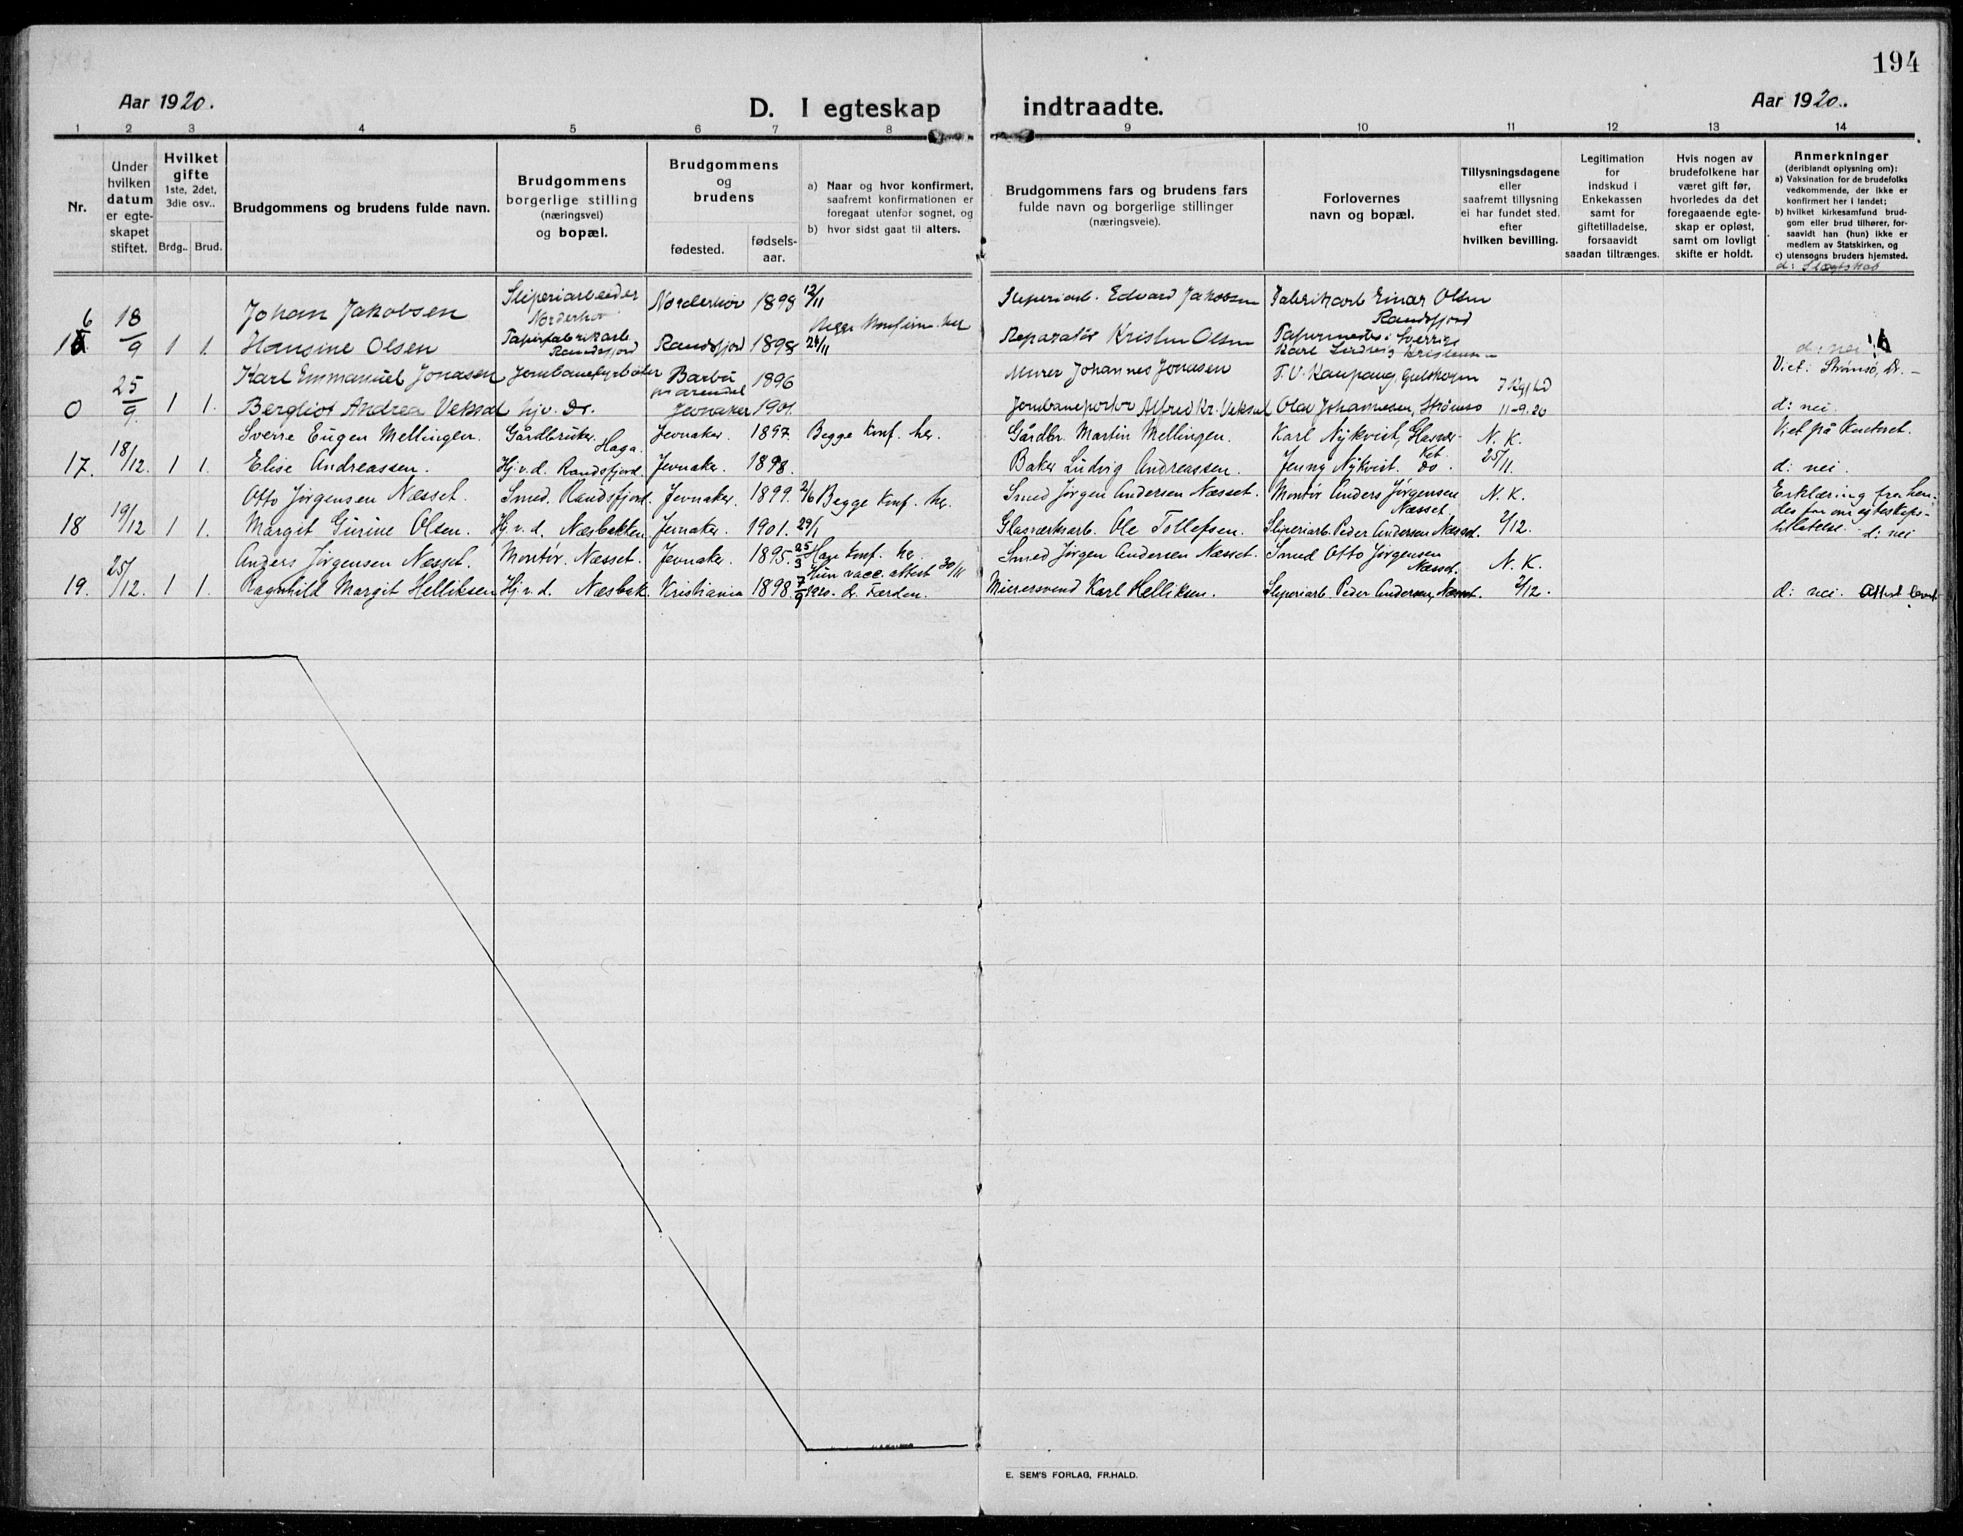 194
Aar 1920.
D. I egteskap indtraadte.
Aar 1920.
1 2 3 4 5 6 7 8 9 10 11 12 13 14
Nr.
Under hvilken datum er egteskapet stiftet.
Hvilket gifte 1ste, 2det, 3die osv..
Brdg.. Brud.
Brudgommens og brudens fulde navn.
Brudgommens borgerlige stilling (næringsvei) og bopæl.
Brudgommens og brudens
fødested. fødselsaar.
a) Naar og hvor konfirmert, saafremt konfirmationen er foregaat utenfor sognet, og
b) hvor sidst gaat til alters.
Brudgommens fars og brudens fars fulde navn og borgerlige stillinger (næringsveie).
Forlovernes navn og bopæl.
Tillysningsdagene eller saafremt tillysning ei har fundet sted, efter hvilken bevilling.
Legitimation for indskud i Enkekassen samt for giftetilladelse, forsaavidt saadan tiltrænges.
Hvis nogen av brudefolkene har været gift før, hvorledes da det foregaaende egteskap er opløst, samt om lovligt skifte er holdt.
Anmerkninger (deriblandt oplysning om):
a) Vaksination for de brudefolks vedkommende, der ikke er konfirmert her i landet;
b) hvilket kirkesamfund brudgom eller brud tilhører, forsaavidt han (hun) ikke er medlem av Statskirken, og
c) utensogns bruders hjemsted.
d: Slægtskap
Johan Jakobsen Sliperiarbeider Norderhov Norderhov 1898 12/11 Sliperiarb. Edvard Jakobsen Fabrikarb Einar Olsen Randsfjord
16 18/9 1 1. Hansine Olsen Papirfabrikarb. Randsfjord Randsfjord 1898 Begge konfirm. her Reparatør Kristen Olsen Papirmester i Sverrige Karl Ludvig Kristensen d: nei
Karl Emmanuel Jonasen Jernbanefyrbøter Barbu pr Arendal 1896 Murer Johannes Jonasen T. V. Kaupang, Gulskogen Viet: Strømsø, Dr.
0 25/9. 1 1. Bergliot Andrea Veksal hjv. Dr. Jevnaker 1901. Jernbaneportør Alfred Kr. Veksal Olav Johannesen, Strømsø 11-9.20 d: nei.
Sverre Eugen Mellingen. Gårdbruker. Haga. Jevnaker. 1897. Begge Konf. her. Gårdbr. Martin Mellingen. Karl Nykvist, N. K. Viet på Kontoret.
17. 18/12. 1 1. Elise Andreassen. Hj.v.d. Randsfjord. Jevnaker. 1898. Baker Ludvig Andreassen. Jenny Nykvist. do. 25/11. d: nei.
Otto Jørgensen Næsset. Smed. Randsfjord. Jevnaker. 1899. 2/6 Begge Konf. her. Smed Jørgen Andersen Næsset. Montør Anders Jørgensen Næsset. N. K. Erklæring fra hendes far om egteskapstillatelse.
18 19/12 1 1. Margit Gurine Olsen. Hj.v.d. Næsbakken. Jevnaker. 1901. 29/1 Glasværksarb. Ole Tollefsen. Sliperiarb. Peder Andersen Næsset. 2/12. d: nei
Anders Jørgensen Næsset. Montør. Næsset. Jevnaker. 1895. 25/3 Han Konf. her. Hun vacc. attest 30/11 Smed Jørgen Andersen Næsset. Smed Otto Jørgensen Næsset. N. K.
19. 25/12. 1 1. Ragnhild Margit Helliksen Hj.v.d. Næsbak. Kristiania 1898. 7/9 1920. dr. Færden. Murersvend Karl Helliksen. Sliperiarb. Peder Andersen, Næsset. 2/12. d: nei. Attest
E. SEM'S FORLAG, FR.HALD.